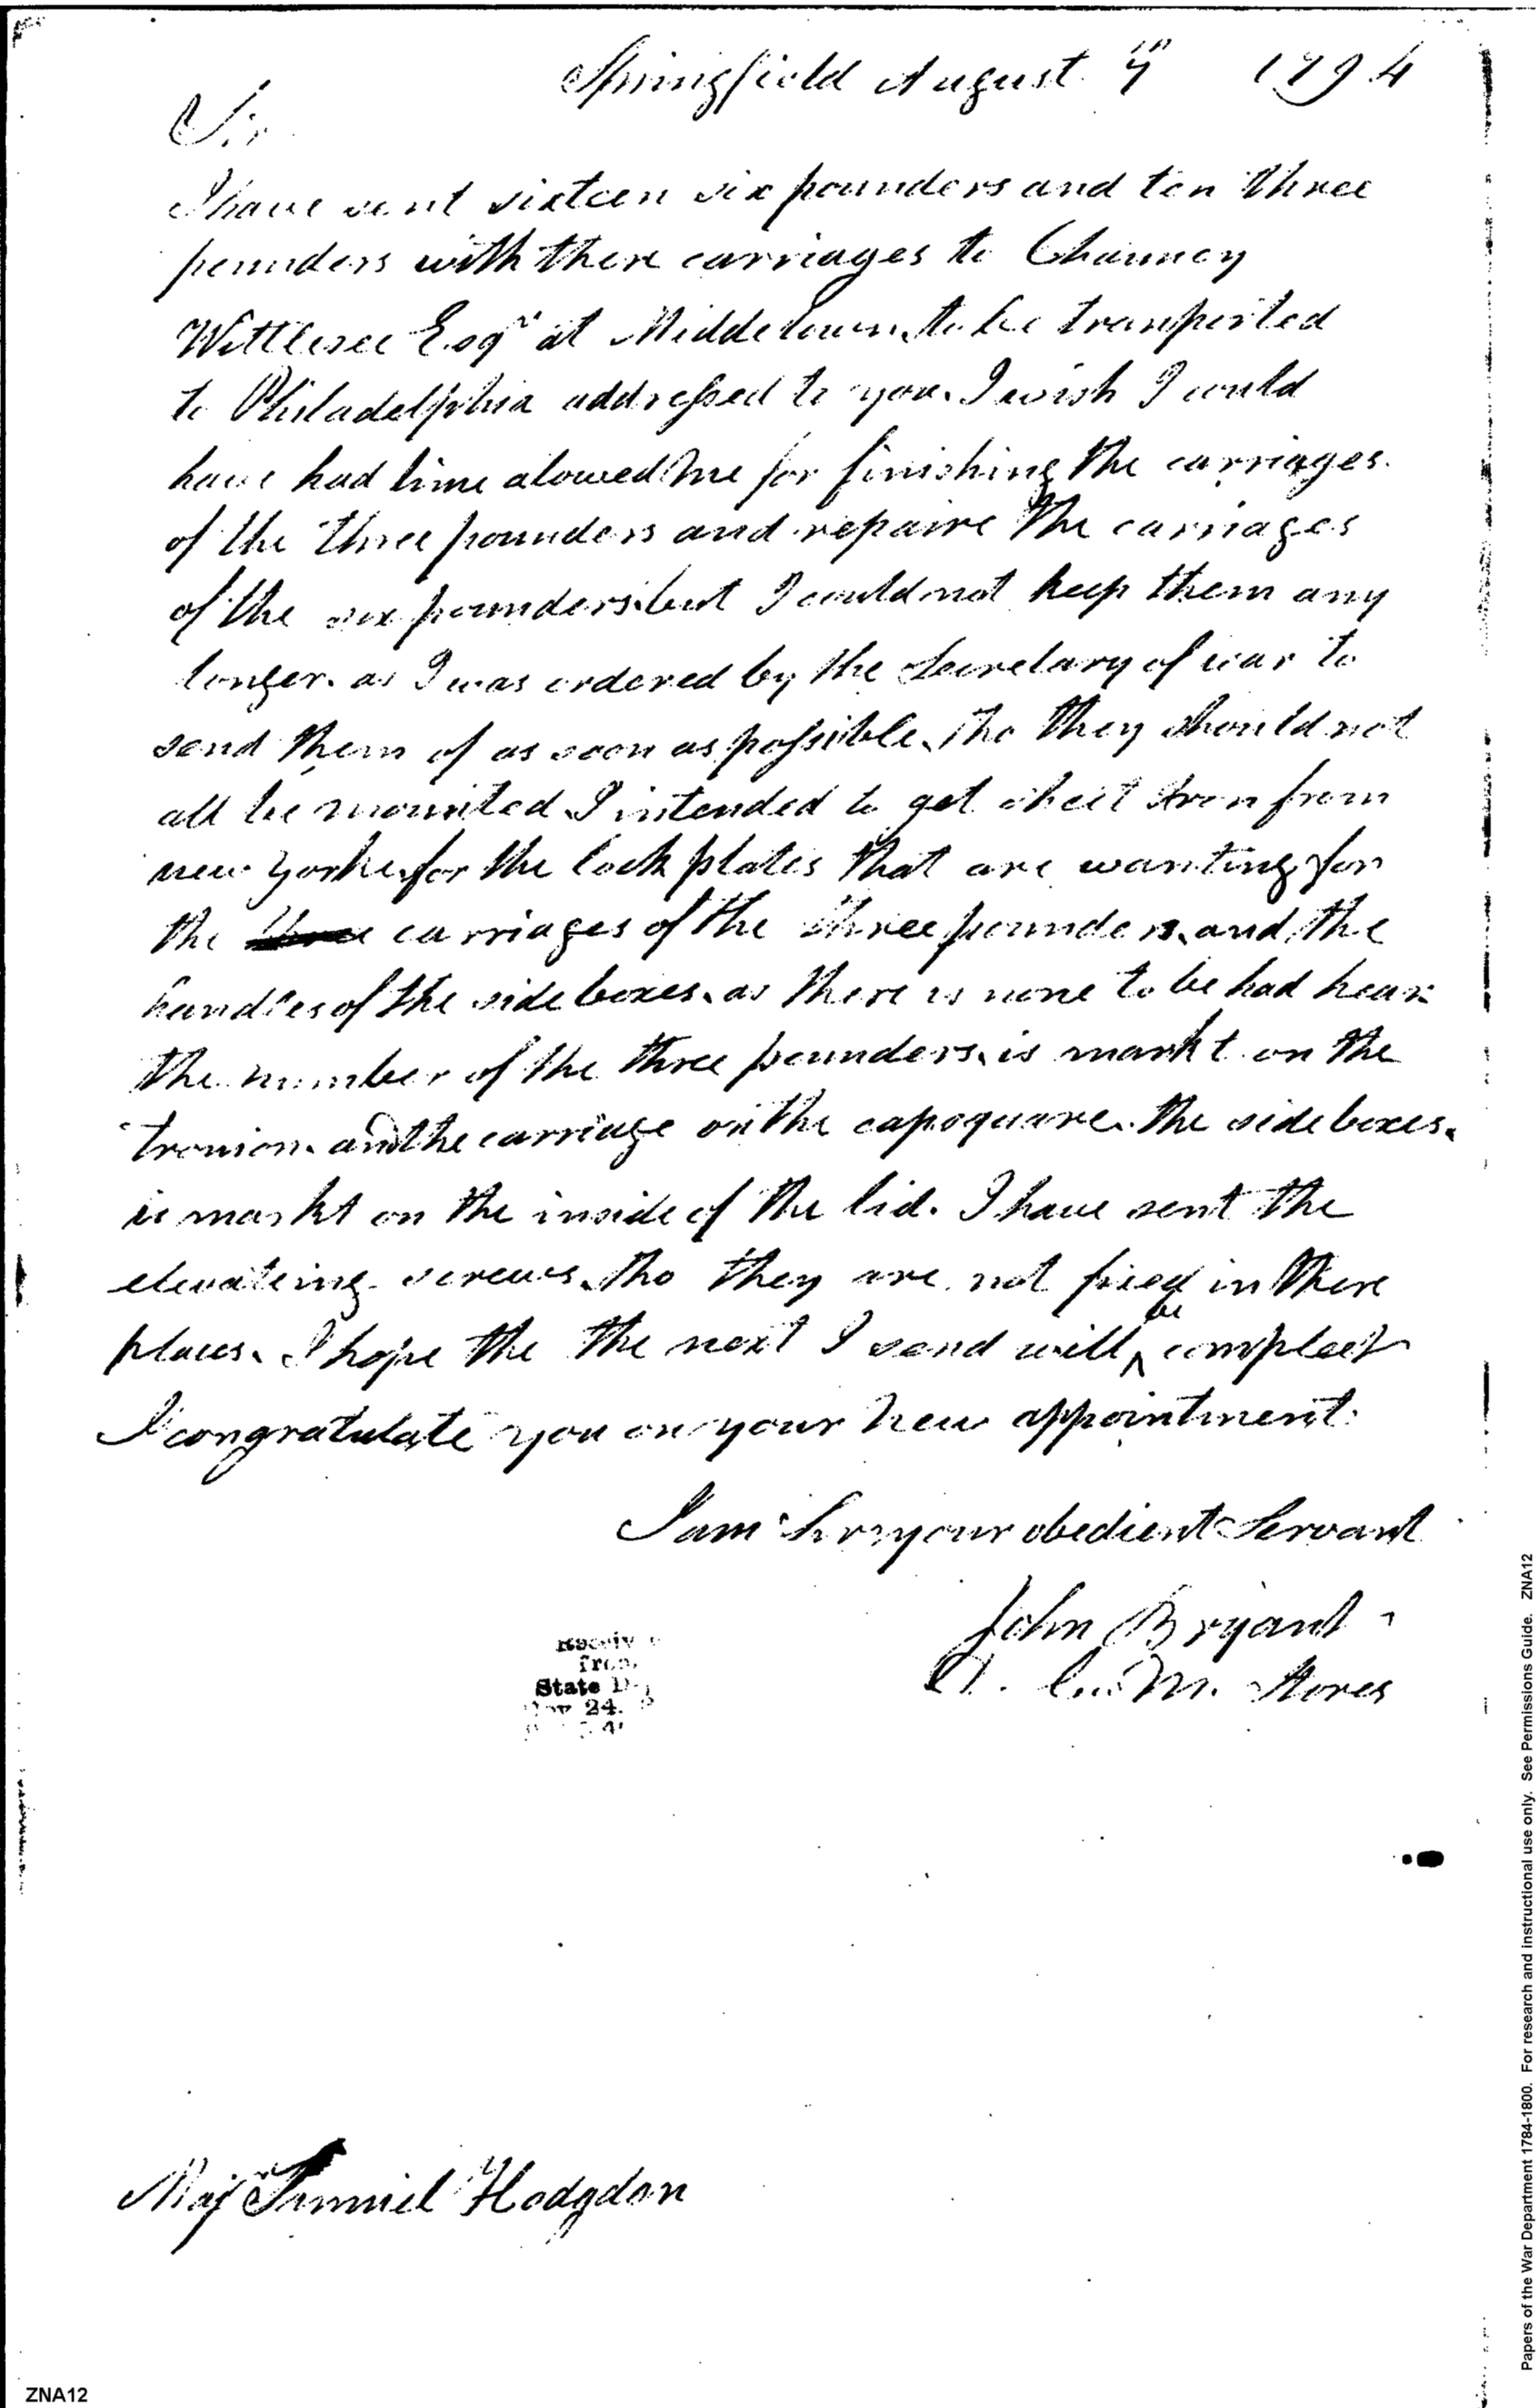 Springfield August 4th 1794
Sir
I have sent sixteen six pounders and ten three
pounders with there carriages to Chauncy
Wittlesee Esqr at Middeltown. to be tranported
to Philadelphia addressed to you. I wish I could
have had time alowed me for finishing the carriages.
of the three pounders and repaire the carriages
of the six pounders. but I could not keep them any
longer. as I was ordered by the Secretary of war to
send them of as soon as possible. tho they should not
all be mounted I intended to get sheet Iron from
new yorke. for the lock plates that are wanting for
the three carriages of the three pounders. and the
handles of the side boxes. as there is none to be had hear
the number of the three pounders. is markt on the
tronion. and the carriage on the capsquare. the side boxes.
is markt on the inside of the lid. I have sent the
elevateing screws. tho they are not fixed in there
places. I hope the the next I send will be compleet
I congratulate you on your new appointment.
I am Sir your obedient Servant
John Bryant
M. Stores
Receiv
from
State D
Nov 24.
Maj Samuel Hodgdon
ZNA12
Papers of the War Department 1784-1800. For research and instructional use only. See Permissions Guide. ZNA12